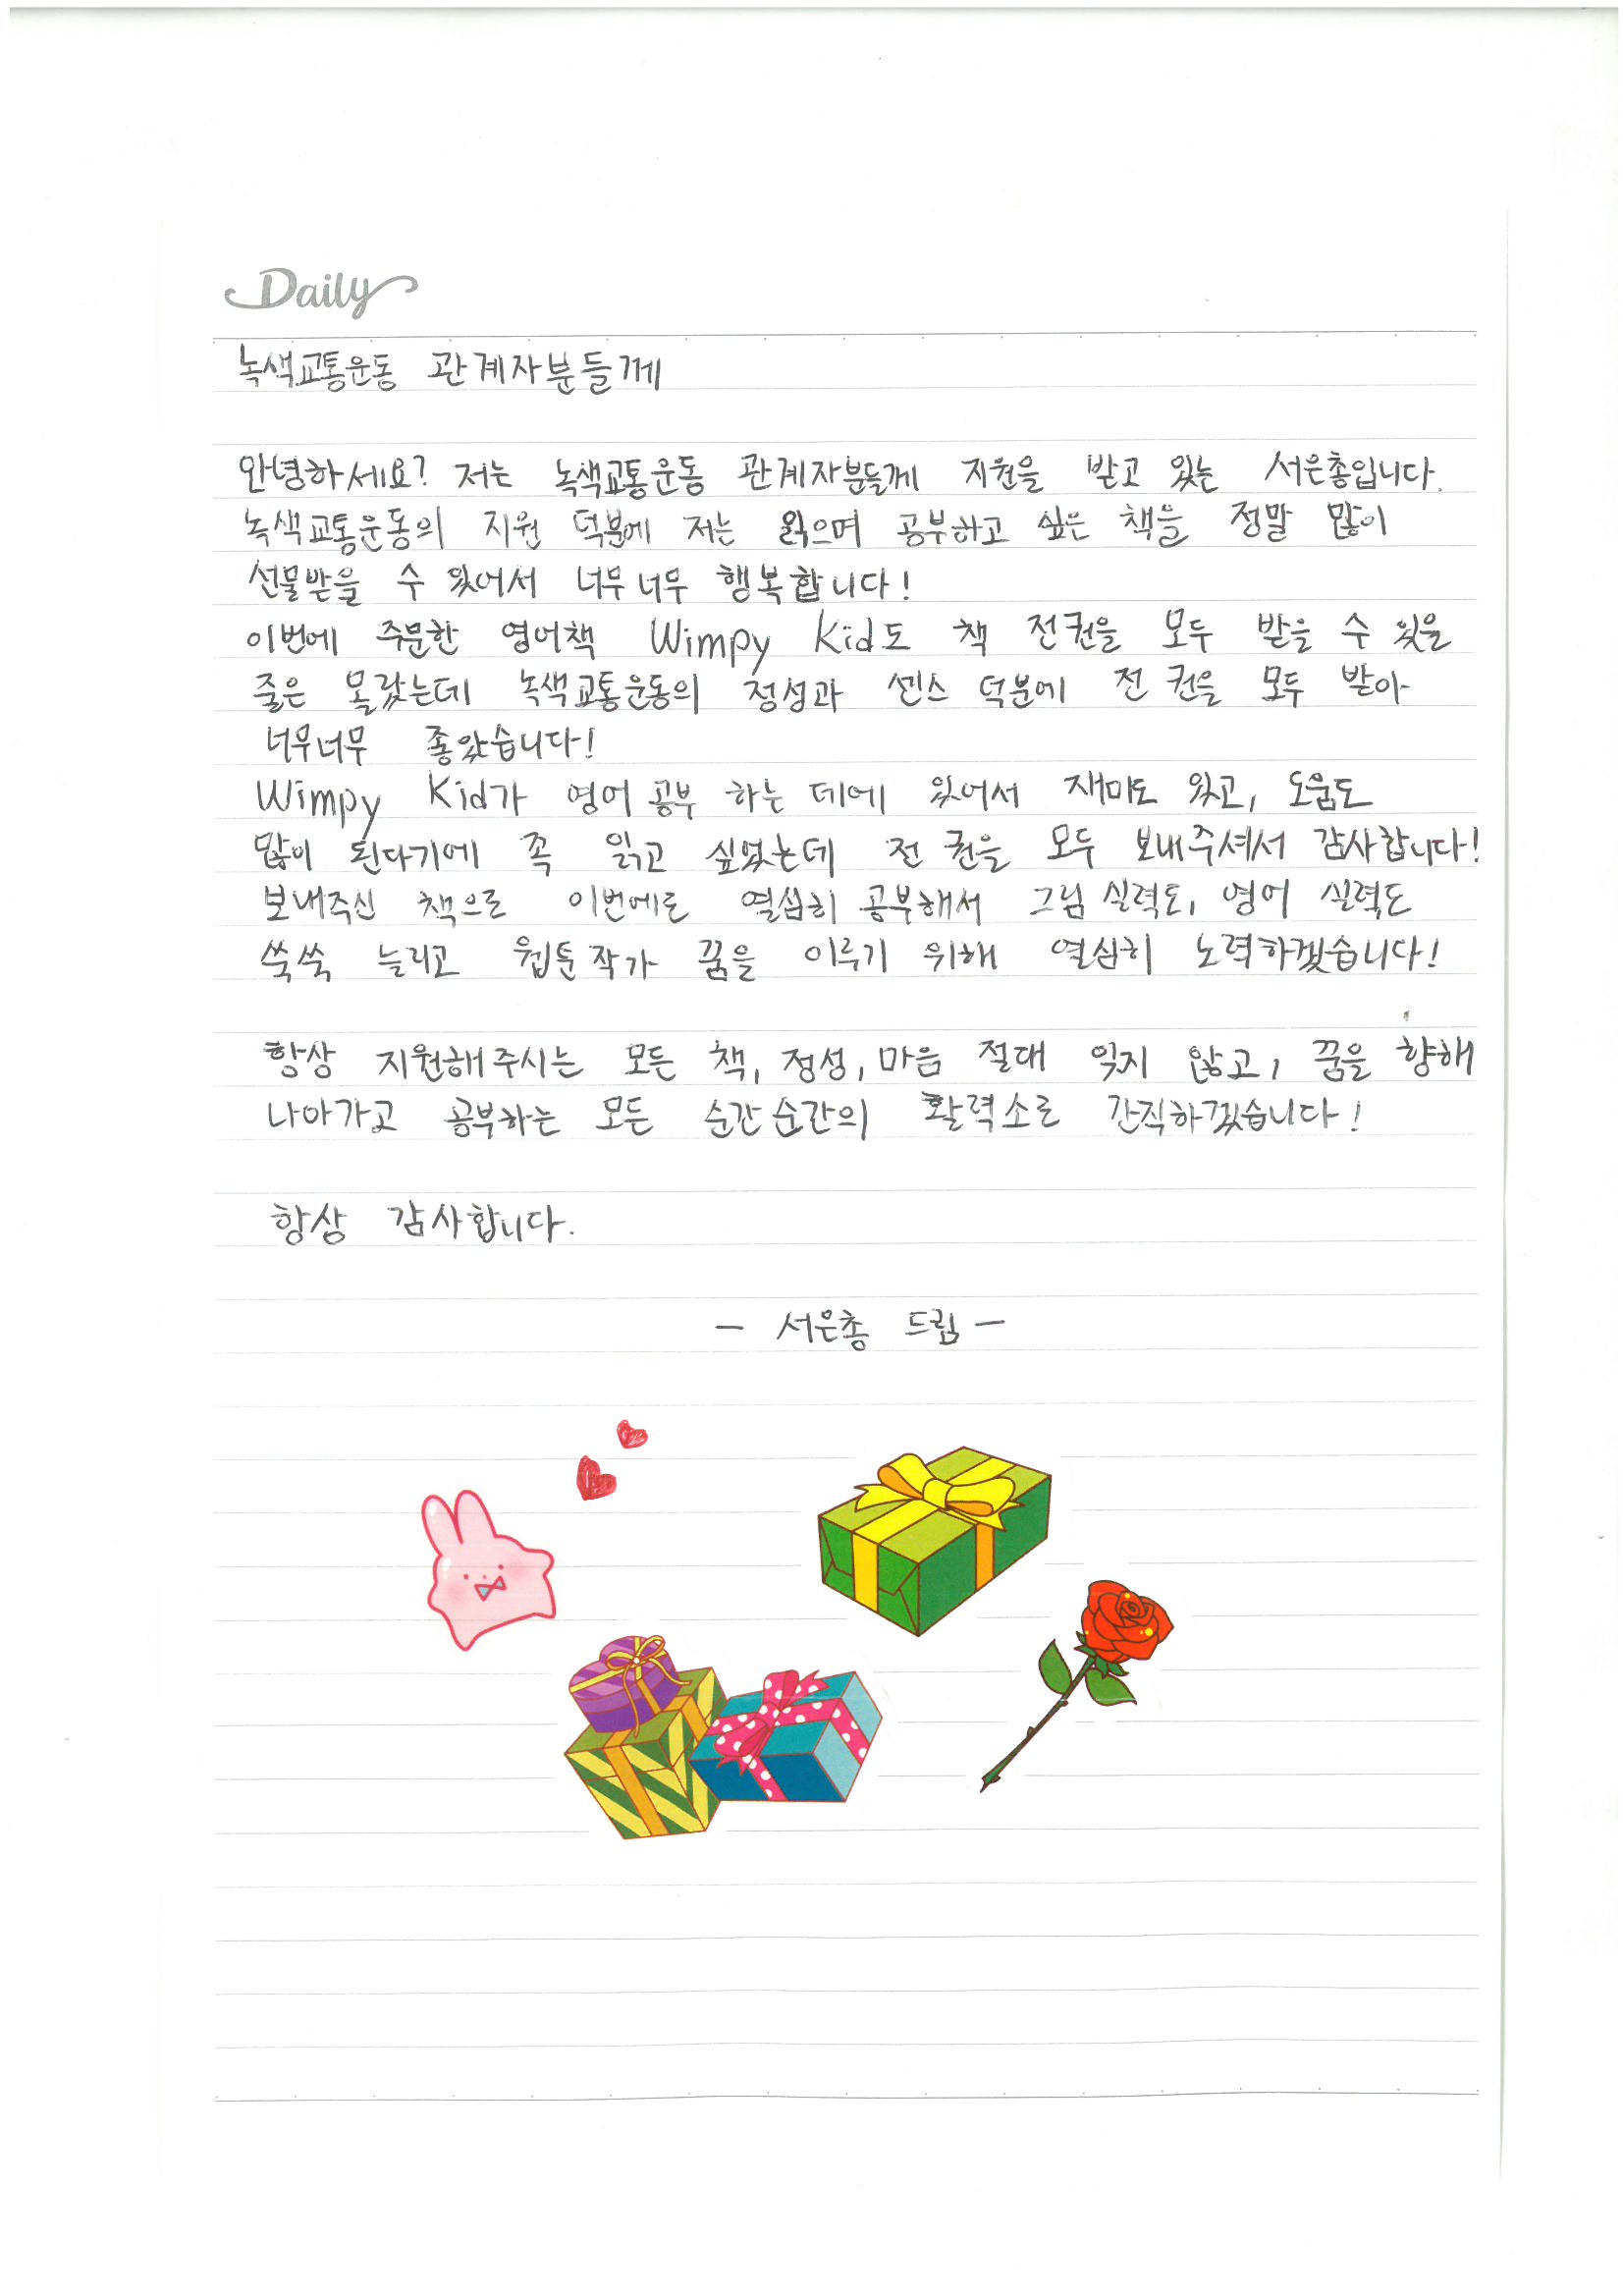 Daily
녹색교통운동 관계자분들께
안녕하세요? 저는 녹색교통운동 관계자분들께 지원을 받고 있는 서은총입니다.
녹색교통운동의 지원 덕분에 저는 읽으며 공부하고 싶은 책을 정말 많이
선물받을 수 있어서 너무너무 행복합니다!
이번에 주문한 영어책 Wimpy Kid도 책 전권을 모두 받을 수 있을
줄은 몰랐는데 녹색교통운동의 정성과 센스 덕분에 전 권을 모두 받아
너무너무 좋았습니다!
Wimpy Kid가 영어 공부 하는 데에 있어서 재미도 있고, 도움도
많이 된다기에 꼭 읽고 싶었는데 전 권을 모두 보내주셔서 감사합니다!
보내주신 책으로 이번에도 열심히 공부해서 그림 실력도, 영어 실력도
쑥쑥 늘리고 웹툰작가 꿈을 이루기 위해 열심히 노력하겠습니다!
항상 지원해주시는 모든 책, 정성, 마음 절대 잊지 않고, 꿈을 향해
나아가고 공부하는 모든 순간순간의 활력소로 간직하겠습니다!
항상 감사합니다.
- 서은총 드림 -